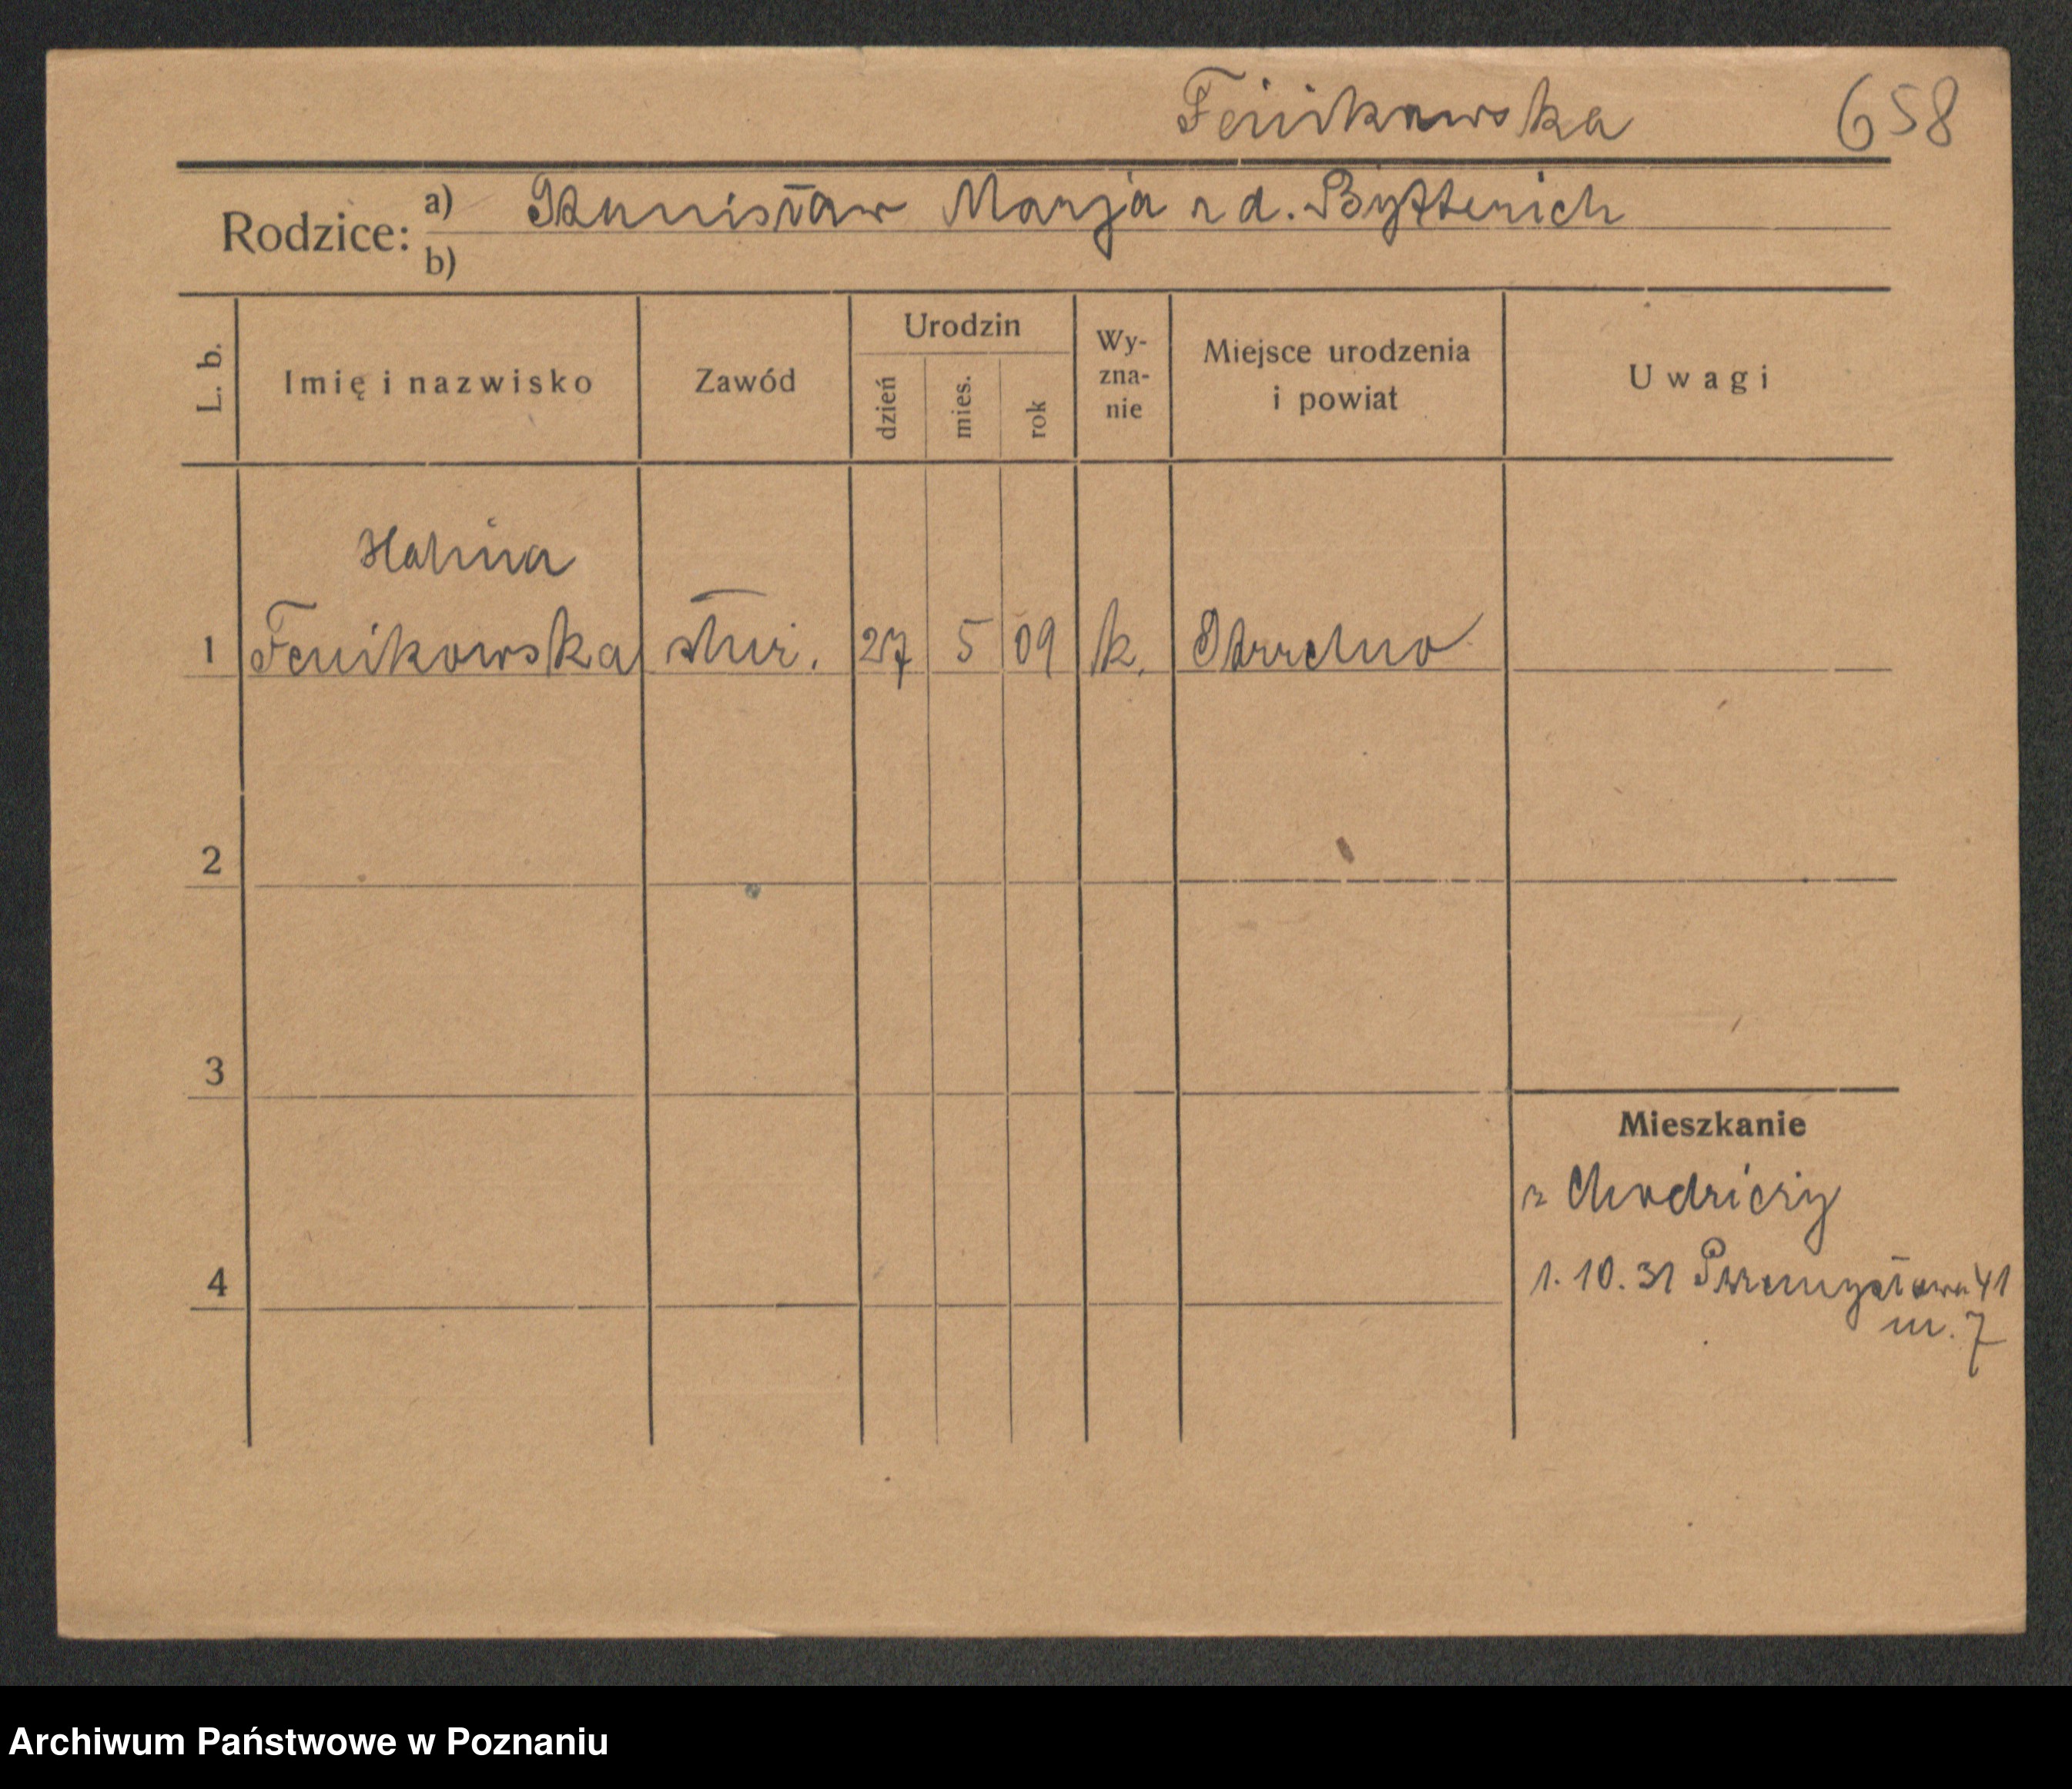 Fenikowska 658
Rodzice: a) Stanisław Marja z d. Byttenich
b)
L. b. Imię i nazwisko Zawód Urodzin dzień mies. rok Wy-zna-nie Miejsce urodzenia i powiat Uwagi
Halina
1 Fenikowska służ. 27 5 09 k. Strzelno
2
3
Mieszkanie
z Chodzieży
1. 10. 31 Przemysłowa 41
4
m. 7
Archiwum Państwowe w Poznaniu